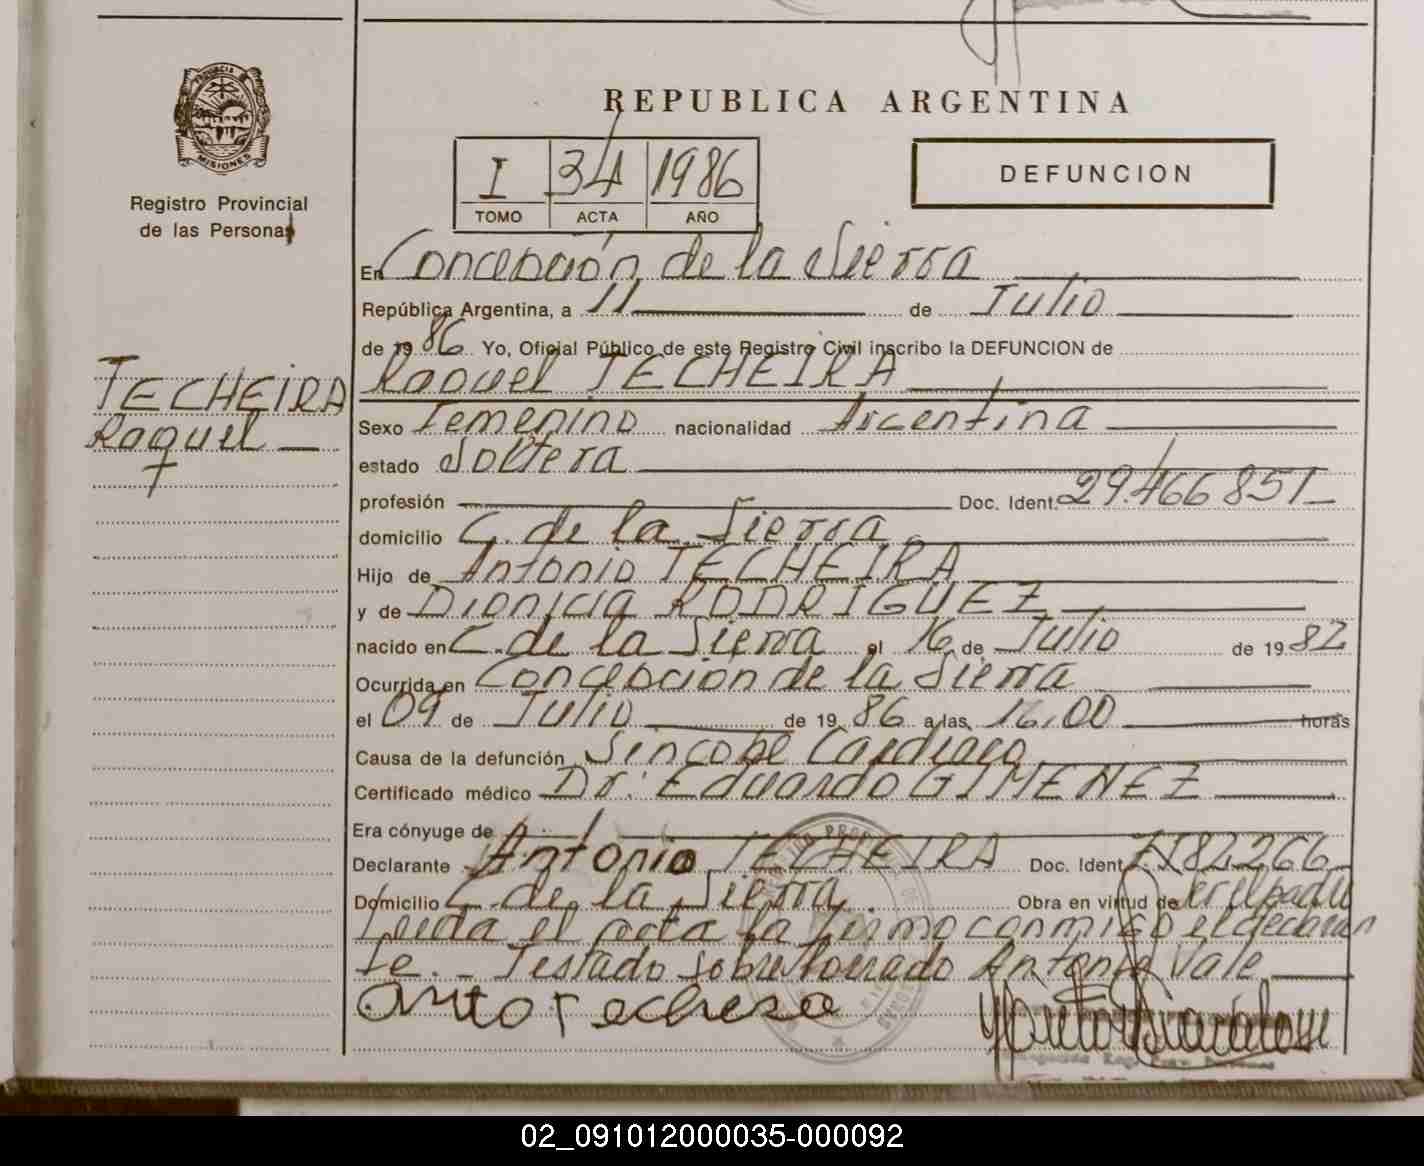 REPUBLICA ARGENTINA
PROVINCIA DE
MISIONES
Registro Provincial
de las Personas
I 34 1986
TOMO ACTA AÑO
DEFUNCION
En Concepción de la Sierra
República Argentina, a 11 de Julio
de 19 86 Yo, Oficial Público de este Registro Civil inscribo la DEFUNCION de
TECHEIRA
Raquel
Raquel TECHEIRA
Sexo Femenino nacionalidad Argentina
estado Soltera
profesión Doc. Ident. 29.466 851
domicilio C. de la Sierra
Hijo de Antonio TECHEIRA
y de Dionicia RODRIGUEZ
nacido en C. de la Sierra el 16 de Julio de 19 82
Ocurrida en Concepción de la Sierra
el 09 de Julio de 19 86 a las 16,00 horas
Causa de la defunción Sincope Cardiaco
Certificado médico Dr: Eduardo GIMENEZ
Era cónyuge de
Declarante Antonio TECHEIRA Doc. Ident.
Domicilio C. de la Sierra. Obra en virtud de ser el padre
Leida el acta la firmo conmigo el declaran
te. - Testado sobre borrado Antonio Vale
02_091012000035-000092